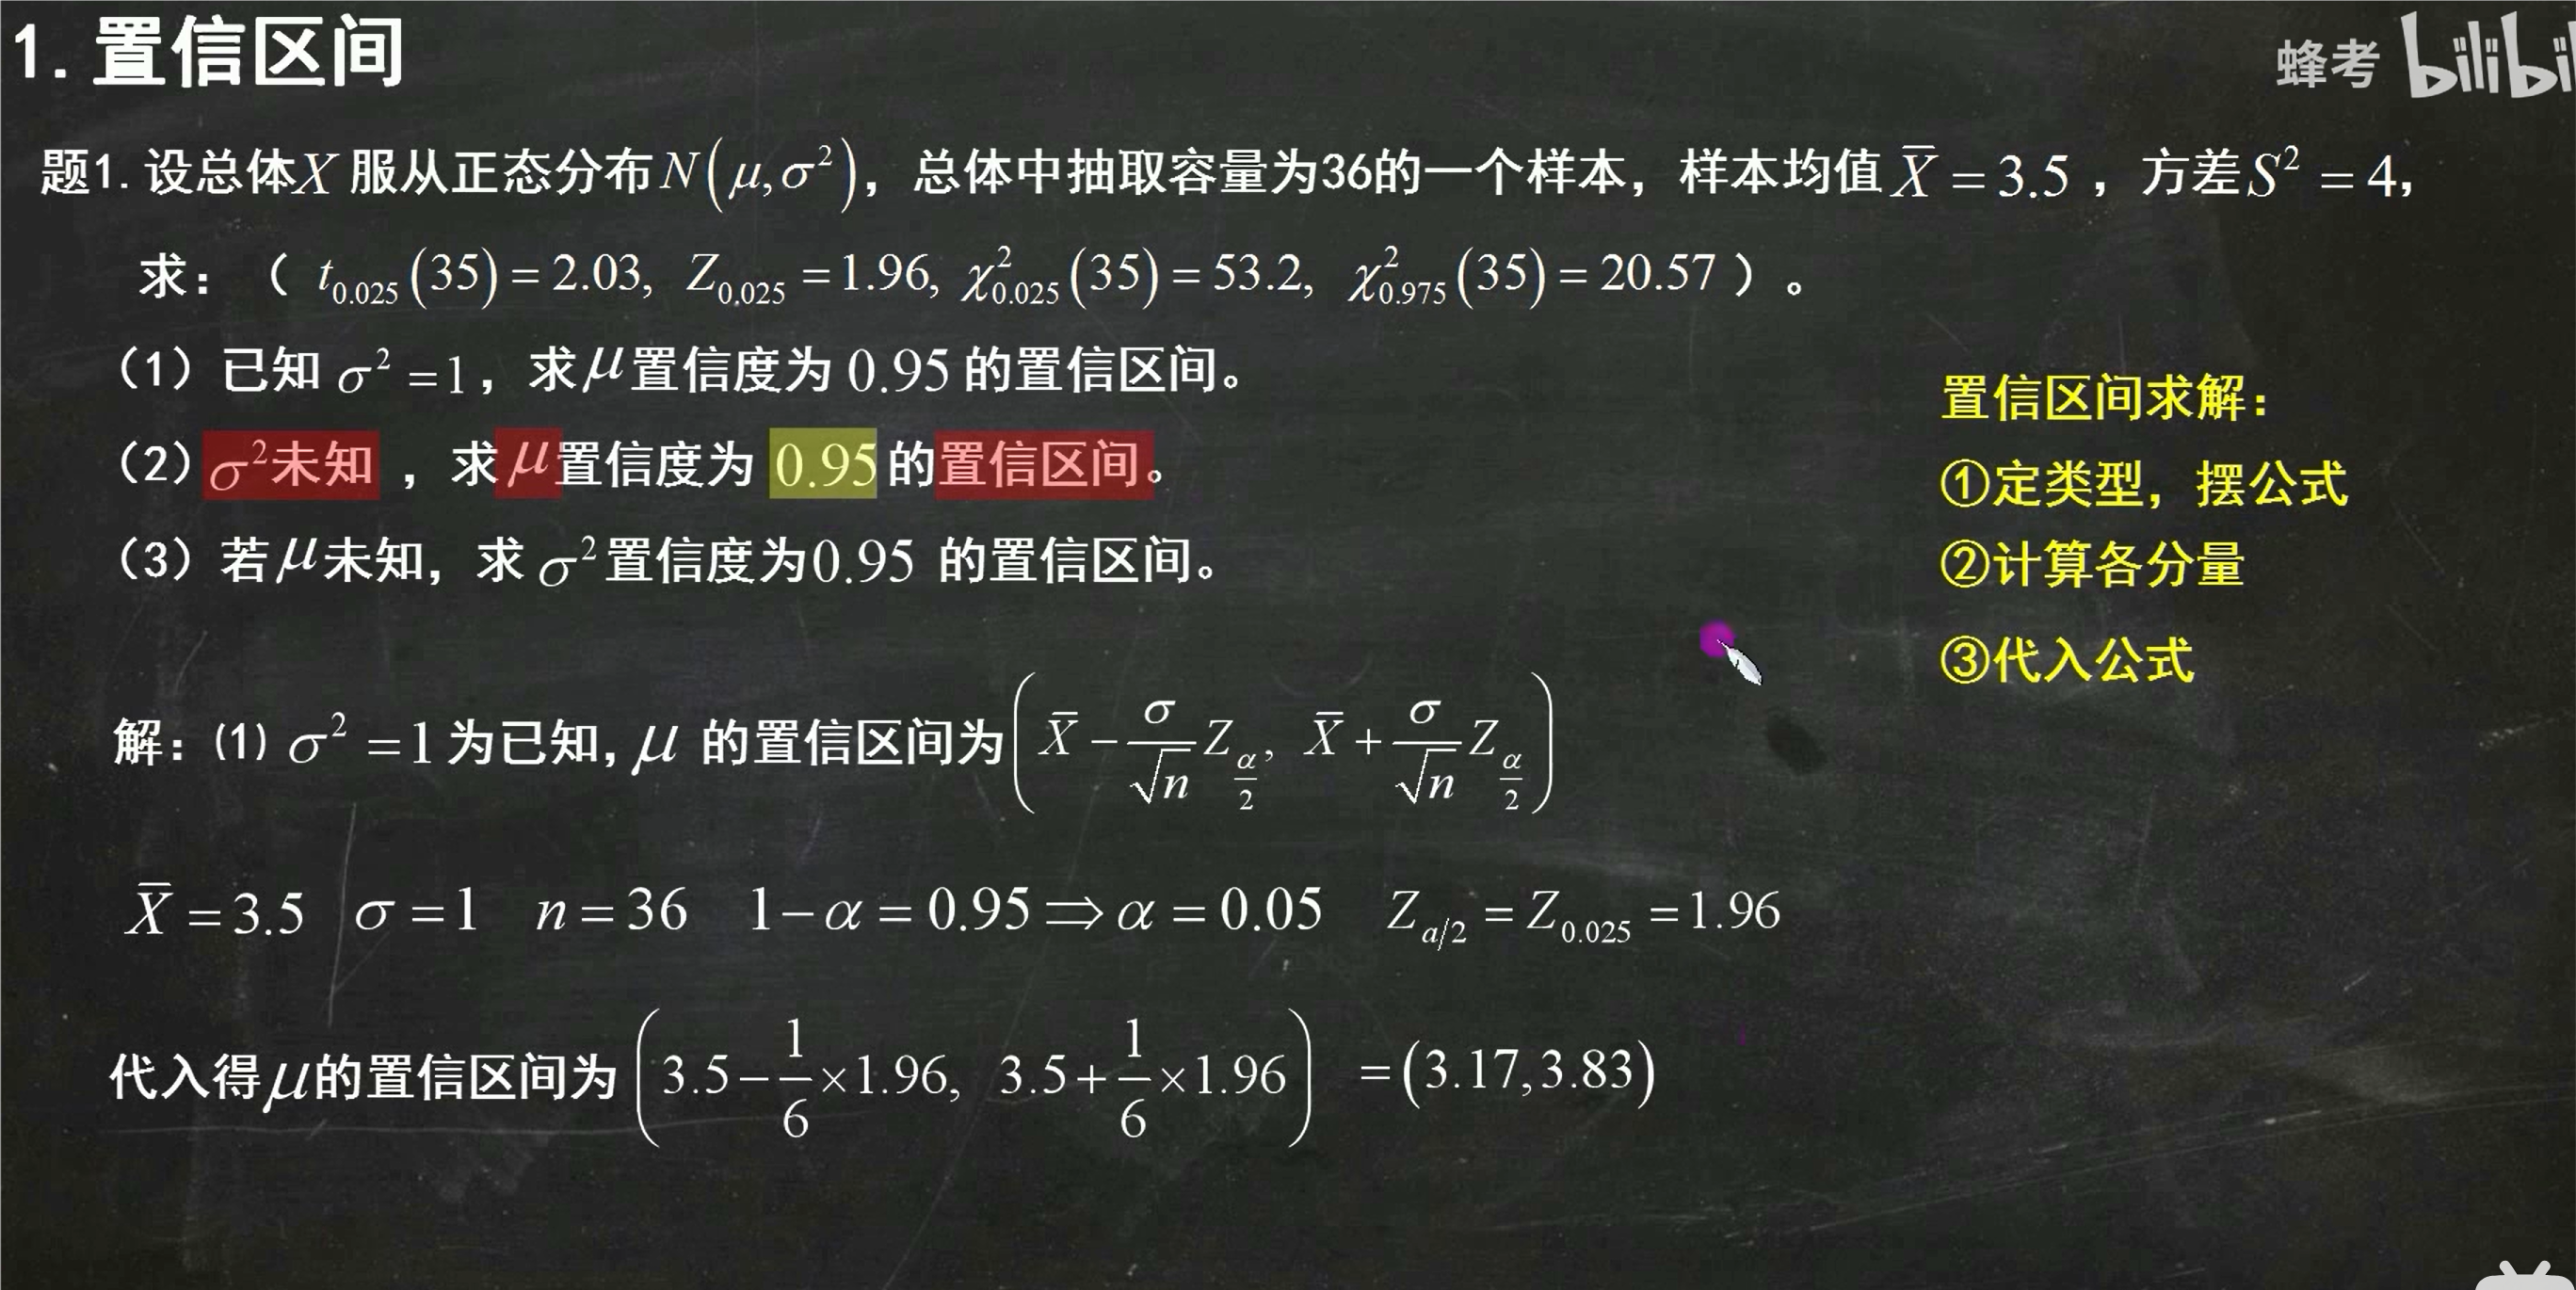 1.置信区间
蜂考 bilibili
题1.设总体X 服从正态分布N(μ,σ²)，总体中抽取容量为36的一个样本，样本均值X̄ = 3.5 ，方差S² = 4,
求：（ t₀.₀₂₅(35) = 2.03, Z₀,₀₂₅ = 1.96, χ²₀.₀₂₅(35) = 53.2, χ²₀.₉₇₅(35) = 20.57 ）。
（1）已知 σ² =1，求μ置信度为 0.95 的置信区间。
（2）σ²未知 ，求μ置信度为 0.95 的置信区间。
（3）若μ未知，求 σ²置信度为0.95 的置信区间。
置信区间求解：
①定类型，摆公式
②计算各分量
③代入公式
解：(1) σ² =1 为已知, μ 的置信区间为(X̄ − σ/√n Z_{α/2}, X̄ + σ/√n Z_{α/2})
X̄ = 3.5 σ =1 n = 36 1−α = 0.95 ⇒ α = 0.05 Z_{a/2} = Z₀.₀₂₅ = 1.96
代入得μ的置信区间为 (3.5 − 1/6 ×1.96, 3.5 + 1/6 ×1.96) = (3.17,3.83)